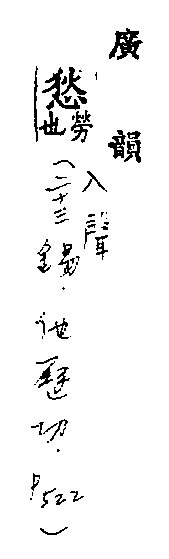 廣韻
悐勞也
入聲
(二十三錫.他歷切.P522)